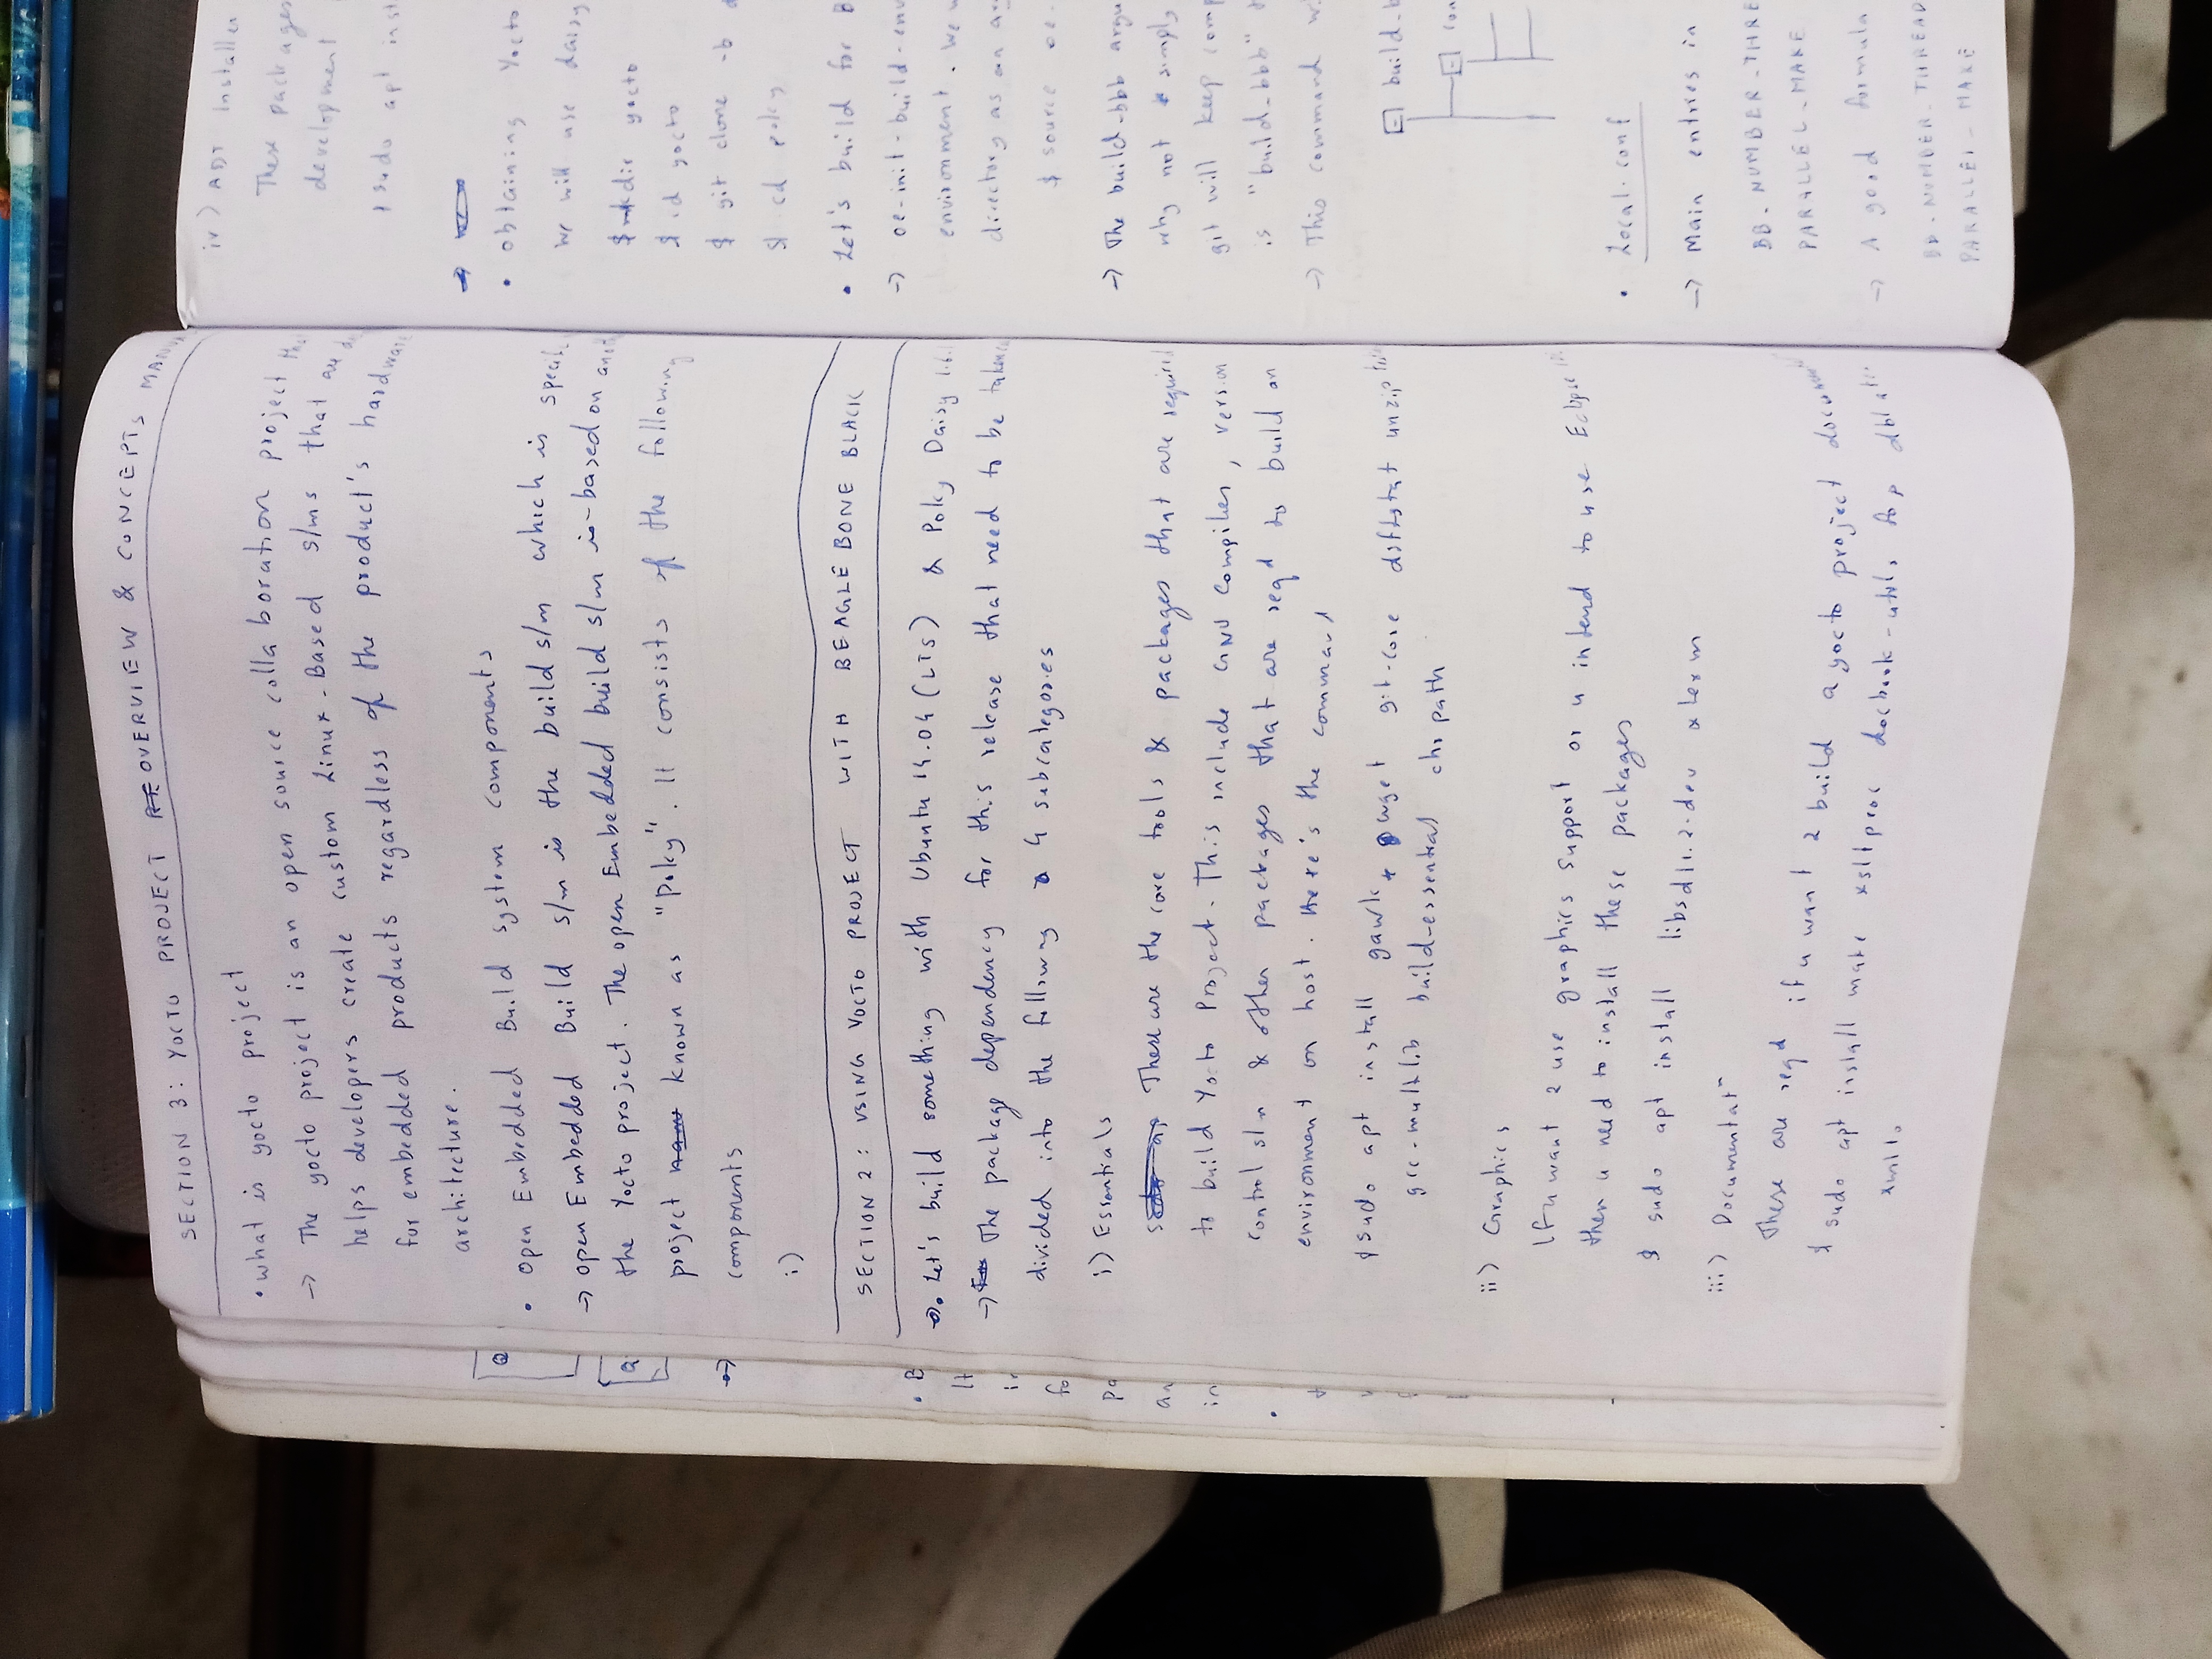 SECTION 3: YOCTO PROJECT OVERVIEW & CONCEPTS MANUA
• What is yocto project
→ The yocto project is an open source collaboration project tha
helps developers create custom Linux-Based s/ms that are de
for embedded products regardless of the product's hardware
architecture.
• open Embedded Build system components
→ open Embedded Build s/m is the build s/m which is specifi
the Yocto project. The open Embedded build s/m is based on anot
project known as "Poky". It consists of the following
components
i)
SECTION 2: USING YOCTO PROJECT WITH BEAGLEBONE BLACK
• Let's build something with Ubuntu 14.04 (LTS) & Poky Daisy 1.6.1
→ The package dependency for this release that need to be taken
divided into the following 4 subcategories
i) Essentials
These are the core tools & packages that are required
to build Yocto Project. This include GNU Compilers, version
control s/m & other packages that are reqd to build an
environment on host. Here's the command
$ sudo apt install gawk wget git-core diffstat unzip
gcc-multilib build-essential chrpath
ii) Graphics
If u want 2 use graphics support or u intend to use Eclipse
then u need to install these packages
$ sudo apt install libsdl1.2-dev xterm
iii) Documentat"
These are reqd if u want 2 build a yocto project document
$ sudo apt install make xsltproc docbook-utils fop dblat
xmlto
• B
It
in
fo
pa
an
in
iv) ADT Installer
These packages
development
$ sudo apt inst
• obtaining Yocto
We will use daisy
$ mkdir yocto
$ cd yocto
$ git clone -b d
$ cd poky
• Let's build for B
→ oe-init-build-env
environment. We w
directory as an ar
$ source oe-
→ The build-bbb argu
why not simply
git will keep comp
is "build-bbb" t
→ This command w
build-b
con
• Local.conf
→ Main entries in
BB-NUMBER-THRE
PARALLEL-MAKE
→ A good formula
BB-NUMBER-THREAD
PARALLEL-MAKE